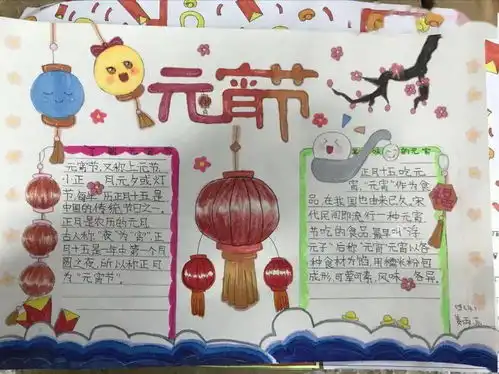 元宵节
元宵节,又称上元节、
小正月、元夕或灯
节,每年 历正月十五是
中国的传统节日之一。
正月是农历的元月,
古人称“夜”为“宵”,正
月十五是一年中第一个月
圆之夜,所以称正月
为“元宵节”。
的元宵
正月十五吃元
宵,“元宵”作为食
品,在我国也由来已久,宋
代民间即流行一种元宵
节吃的食品,最早叫“浮
元子”后称“元宵”,元宵以各
种食材为馅,用糯米粉包
成形,可荤可素,风味 各异。